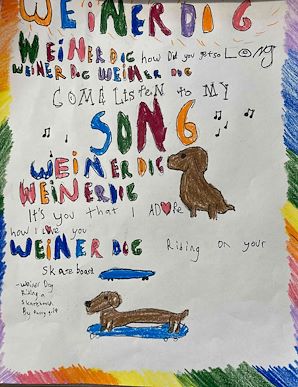 WEiNER DiG
WEiNER DIG how Did you get so LOng
WEINER DIG WEINER DIG
COME LiStEN to MY
SONG
WEINER DIG
WEINERDIG
It's you that I ADore
how I love you
WEINER DOG Riding ON your
Skateboard
-Weiner Dog
Riding a
Skateboard
By